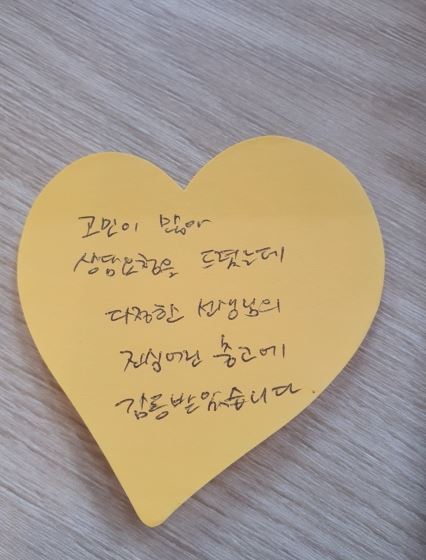 고민이 많아
상담요청을 드렸는데
다정한 선생님의
진심어린 충고에
감동받았습니다.